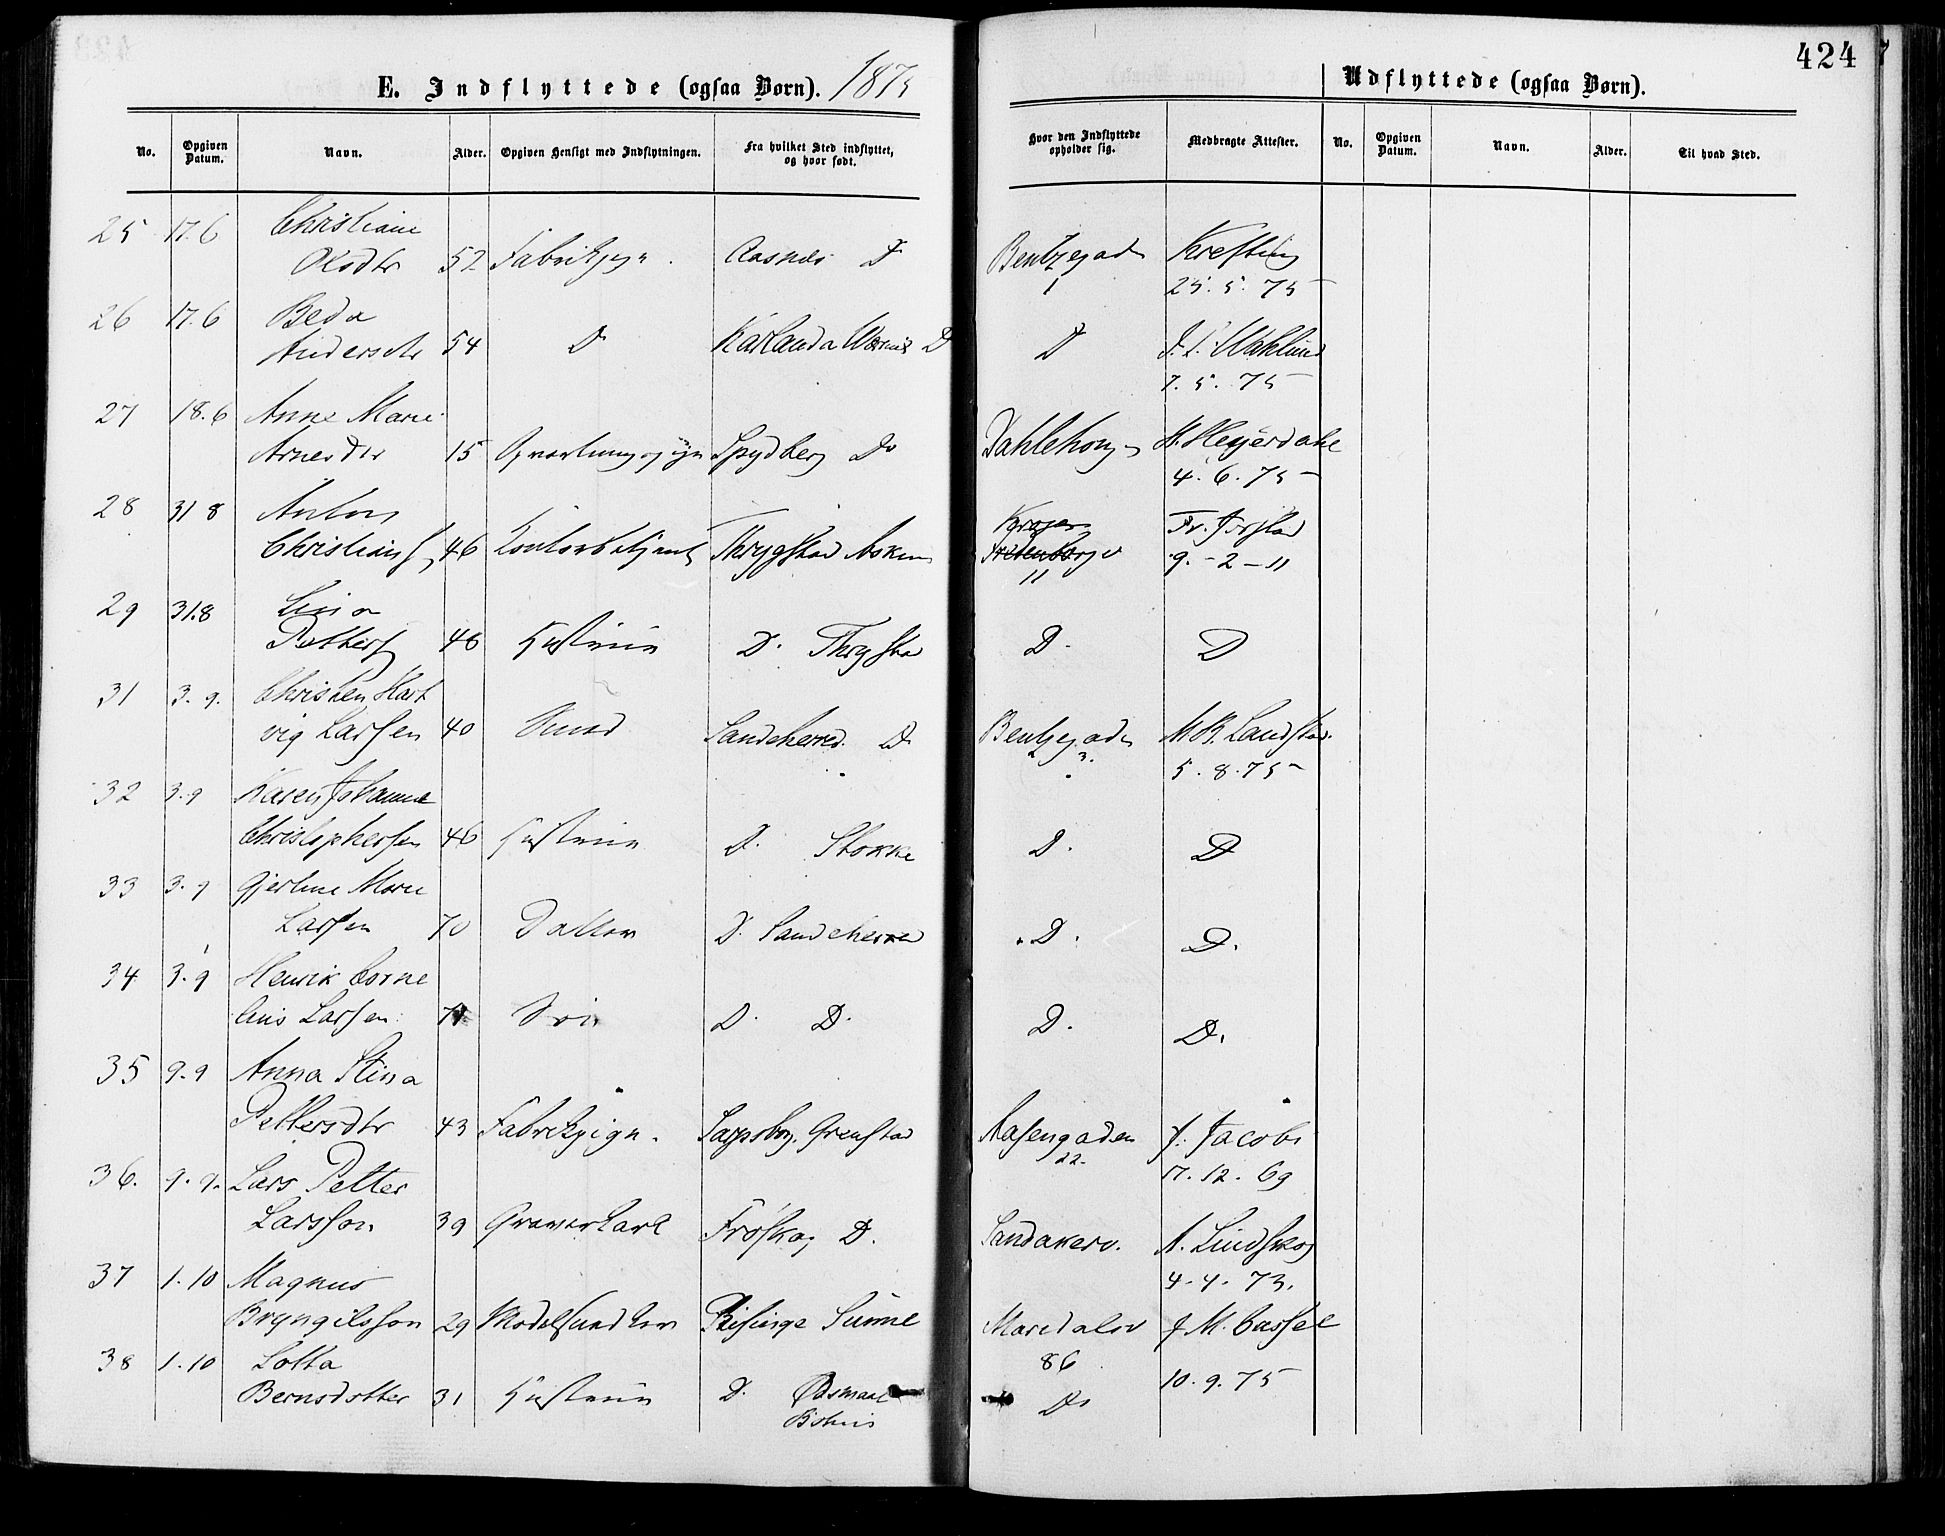 424
E. Indflyttede (ogsaa Børn). 1875
Udflyttede (ogsaa Børn).
No. Opgiven Datum. Navn. Alder. Opgiven Hensigt med Indflytningen. Fra hvilket Sted indflyttet, og hvor født. Hvor den Indflyttede opholder sig. Medbragte Attester. No. Opgiven Datum. Navn. Alder. Til hvad Sted.
25 17.6 Christiane
Olsdtr 52 Aasnes D Bentzegade Krefting
1 25.5.75
26 17.6 Beda
Andersdtr 54 D Karlanda D D Wahlund
7.5.75
27 18.6 Anne Marie
Arnesdtr 15 Spydberg Do H. Heyerdahl
4.6.75
28 31 8 Anton
Christians 46 Kontorbetjent Thrygstad Askim
11 9.-2-11
29 31.8 Lina
Petters 46 Hustrue D. Thrygstad D. D
31 3.9. Christen Hart
vig Larsen 40 Sandeherred. D Bentzegade M B. Landstad
3. 5.8.75
32 3.9 Karen Johanne
Christophersen 46 Hustrue D. Stokke D. D
33 3.9 Gjerline Marie
Larsen 70 Datter D. Sandeherred D. D.
34 3.9 Henrik Corne
lius Larsen. Søn D. D. D. D.
35 9.9 Anna Stina
Pettersdtr 43 Fabrikpige. Sarpsborg. Aasengaden J. Jacobi
22. 17.12.69
36. 9.9. Lars Petter
Larsson 39 Graverkarl Frøskog D. Sandakerv. A. Lindskog
4.4.73.
37 1.10 Magnus
Bryngilsson 29 Sunne Maridalsv J M. Cassel
86 10.9.75
38 1.10 Lotta
Bernsdotter 31 Hustrue D. Ødsmaal Do
Bohus